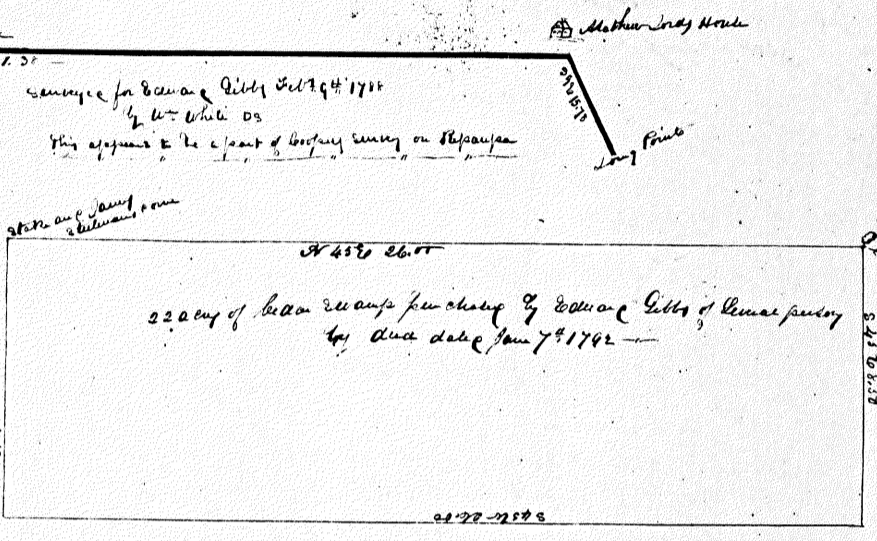 Mathew Lords House
1.38
Surveyed for Edward Gibbs Feb 9th 1788
by Wm White DS
This appears to be a part of Coopers Survey on Repaupa
15.75
Long Point
Stake and James
Steelmans corner
N 45 E 26.00
22 acres of Cedar Swamp purchased by Edward Gibbs of Several persons
by deed dated Jany 7th 1792
S 45 E 8.50
S 45 W 26.00